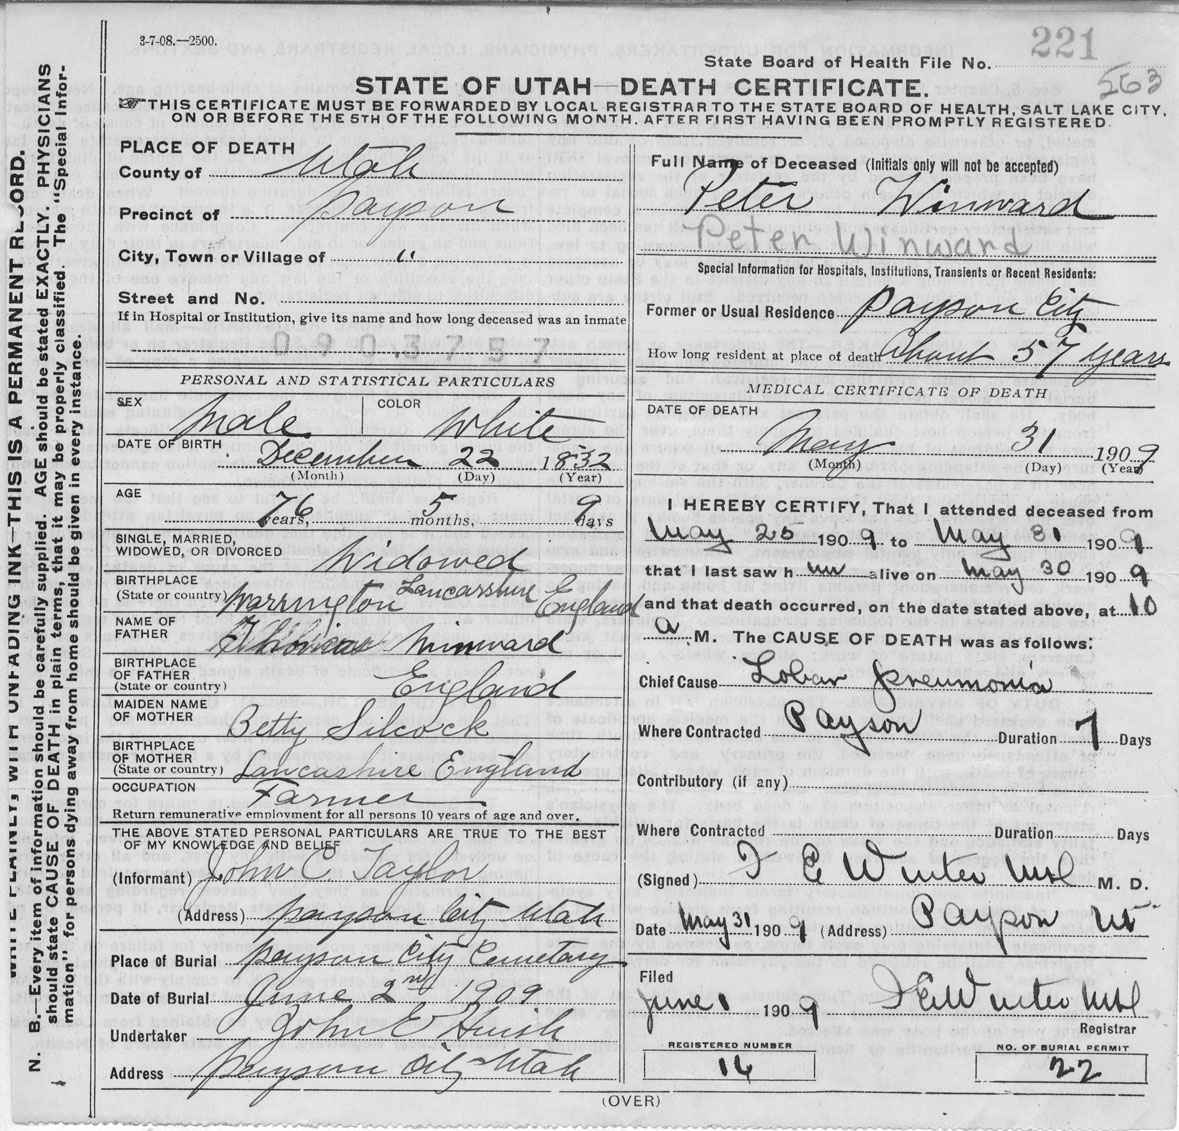 3-7-08.—2500.
221
State Board of Health File No.
563
STATE OF UTAH—DEATH CERTIFICATE.
THIS CERTIFICATE MUST BE FORWARDED BY LOCAL REGISTRAR TO THE STATE BOARD OF HEALTH, SALT LAKE CITY,
ON OR BEFORE THE 5TH OF THE FOLLOWING MONTH, AFTER FIRST HAVING BEEN PROMPTLY REGISTERED.
PLACE OF DEATH
County of Utah
Precinct of Payson
City, Town or Village of "
Street and No.
If in Hospital or Institution, give its name and how long deceased was an inmate
0903757
PERSONAL AND STATISTICAL PARTICULARS
SEX Male COLOR White
DATE OF BIRTH December 22 1832
(Month) (Day) (Year)
AGE 76 years, 5 months, 9 days
SINGLE, MARRIED,
WIDOWED, OR DIVORCED Widowed
BIRTHPLACE
(State or country) Warrington Lancashire England
NAME OF
FATHER Thomas Winward
BIRTHPLACE
OF FATHER
(State or country) England
MAIDEN NAME
OF MOTHER Betty Silcock
BIRTHPLACE
OF MOTHER
(State or country) Lancashire England
OCCUPATION Farmer
Return remunerative employment for all persons 10 years of age and over.
THE ABOVE STATED PERSONAL PARTICULARS ARE TRUE TO THE BEST
OF MY KNOWLEDGE AND BELIEF
(Informant) John C Taylor
(Address) Payson City Utah
Place of Burial Payson City Cemetary
Date of Burial June 2nd 1909
Undertaker John E Huish
Address Payson City Utah
Full Name of Deceased (Initials only will not be accepted)
Peter Winward
Peter Winward
Special Information for Hospitals, Institutions, Transients or Recent Residents:
Former or Usual Residence Payson City
How long resident at place of death About 57 years
MEDICAL CERTIFICATE OF DEATH
DATE OF DEATH
May 31 1909
(Month) (Day) (Year)
I HEREBY CERTIFY, That I attended deceased from
May 1909 to May 31 1909
that I last saw him alive on May 30 1909
and that death occurred, on the date stated above, at 10
a M. The CAUSE OF DEATH was as follows:
Chief Cause Lobar Pneumonia
Where Contracted Payson Duration 7 Days
Contributory (if any)
Where Contracted Duration Days
(Signed) E Winter M.D.
Date May 31 1909 (Address) Payson Ut
Filed
June 1 1909 E Winter
Registrar
REGISTERED NUMBER
NO. OF BURIAL PERMIT
14
22
(OVER)
WRITE PLAINLY, WITH UNFADING INK—THIS IS A PERMANENT RECORD.
N. B.—Every item of information should be carefully supplied. AGE should be stated EXACTLY. PHYSICIANS
should state CAUSE OF DEATH in plain terms, that it may be properly classified. The "Special Infor-
mation" for persons dying away from home should be given in every instance.